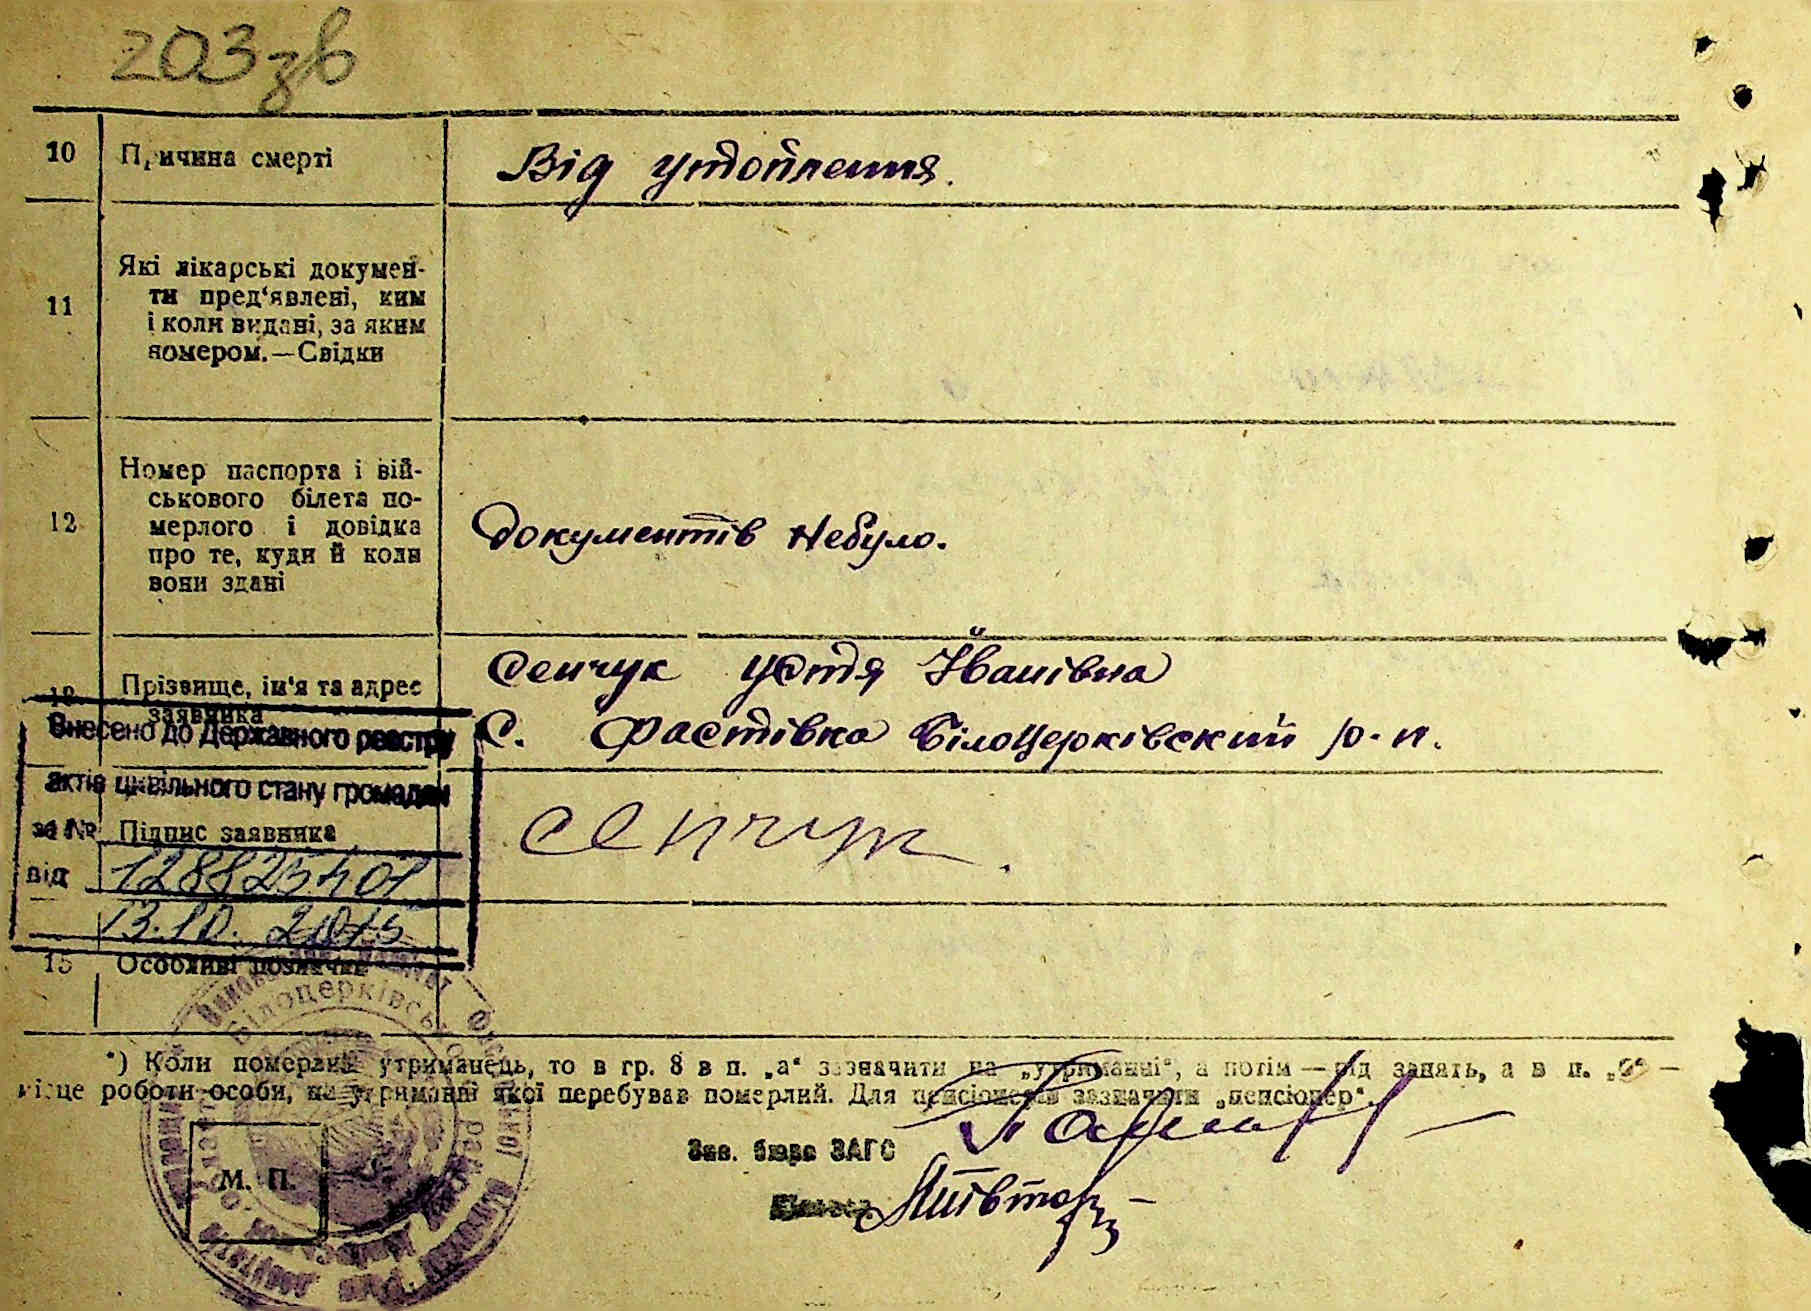 203зв
10 Причина смерті Від утоплення.
11 Які лікарські докумен-
ти пред‘явлені, ким
і коли видані, за яким
номером.—Свідки
12 Номер паспорта і вій-
ськового білета по-
мерлого і довідка
про те, куди й коли
вони здані
Документів небуло.
13 Прізвище, ім'я та адрес
заявника
Сенчук Устя Йванівна
С. Фастівка Білоцерківский р-н.
Внесено до Державного реєстру
актів цивільного стану громадян
за №
Підпис заявника Сенчук.
від 128825401
13.10. 2015
15 Особливі позначки
*) Коли померлий утриманець, то в гр. 8 в п. „а“ зазначити на „утриманні“, а потім — рід занять, а в п. „б“ —
місце роботи особи, на утриманні якої перебував померлий. Для пенсіонерів зазначити „пенсіонер“.
Зав. бюро ЗАГС
М. П.
Білоцерківсько